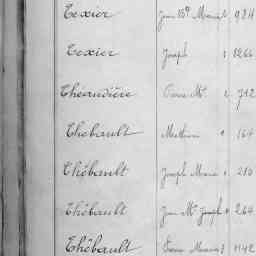 Texier Jean Bte Marie 924
Texier Joseph 1266
Theaudière Pierre Me 712
Thebault Mathurin 164
Thébault Joseph Marie 210
Thébault Jean Me Joseph 264
Thébault Pierre Marie 1142